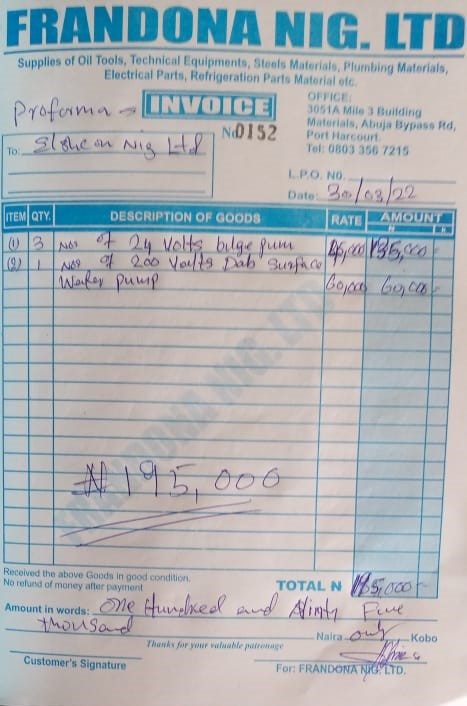 FRANDONA NIG. LTD
Supplies of Oil Tools, Technical Equipments, Steels Materials, Plumbing Materials,
Electrical Parts, Refrigeration Parts Material etc.
Proforma INVOICE
No 0152
OFFICE:
3051A Mile 3 Building
Materials, Abuja Bypass Rd,
Port Harcourt.
Tel: 0803 356 7215
To: Nig Ltd
L.P.O. NO.
Date: 30/03/22
ITEM QTY. DESCRIPTION OF GOODS RATE AMOUNT
N K
(1) 3 Nos of 24 Volts bilge pum 45,000 135,000
(2) 1 Nos of 200 Volts Dab Surface
Water pump 60,000 60,000
FRANDONA NIG. LTD
₦195,000
Received the above Goods in good condition.
No refund of money after payment
TOTAL N 195,000
Amount in words: One Hundred and Ninty Five
thousand Naira only Kobo
Thanks for your valuable patronage
Customer's Signature
For: FRANDONA NIG. LTD.